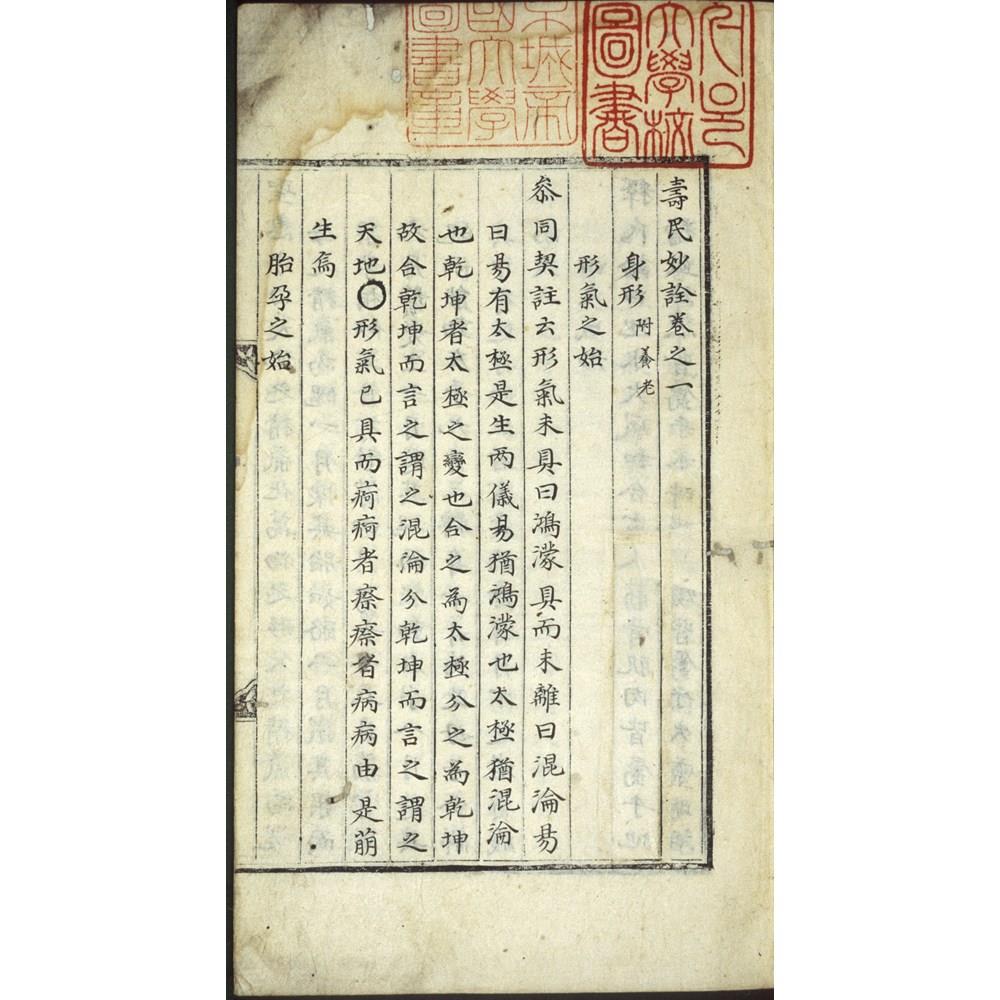 서울大學校圖書
京城帝國大學圖書章
壽民妙詮卷之一
身形 附養老
形氣之始
叅同契註云形氣未具曰鴻濛具而未離曰混淪易
曰易有太極是生两儀易猶鴻濛也太極猶混淪
也乾坤者太極之變也合之為太極分之為乾坤
故合乾坤而言之謂之混淪分乾坤而言之謂之
天地〇形氣已具而痾痾者瘵瘵者病病由是萠
生焉
胎孕之始